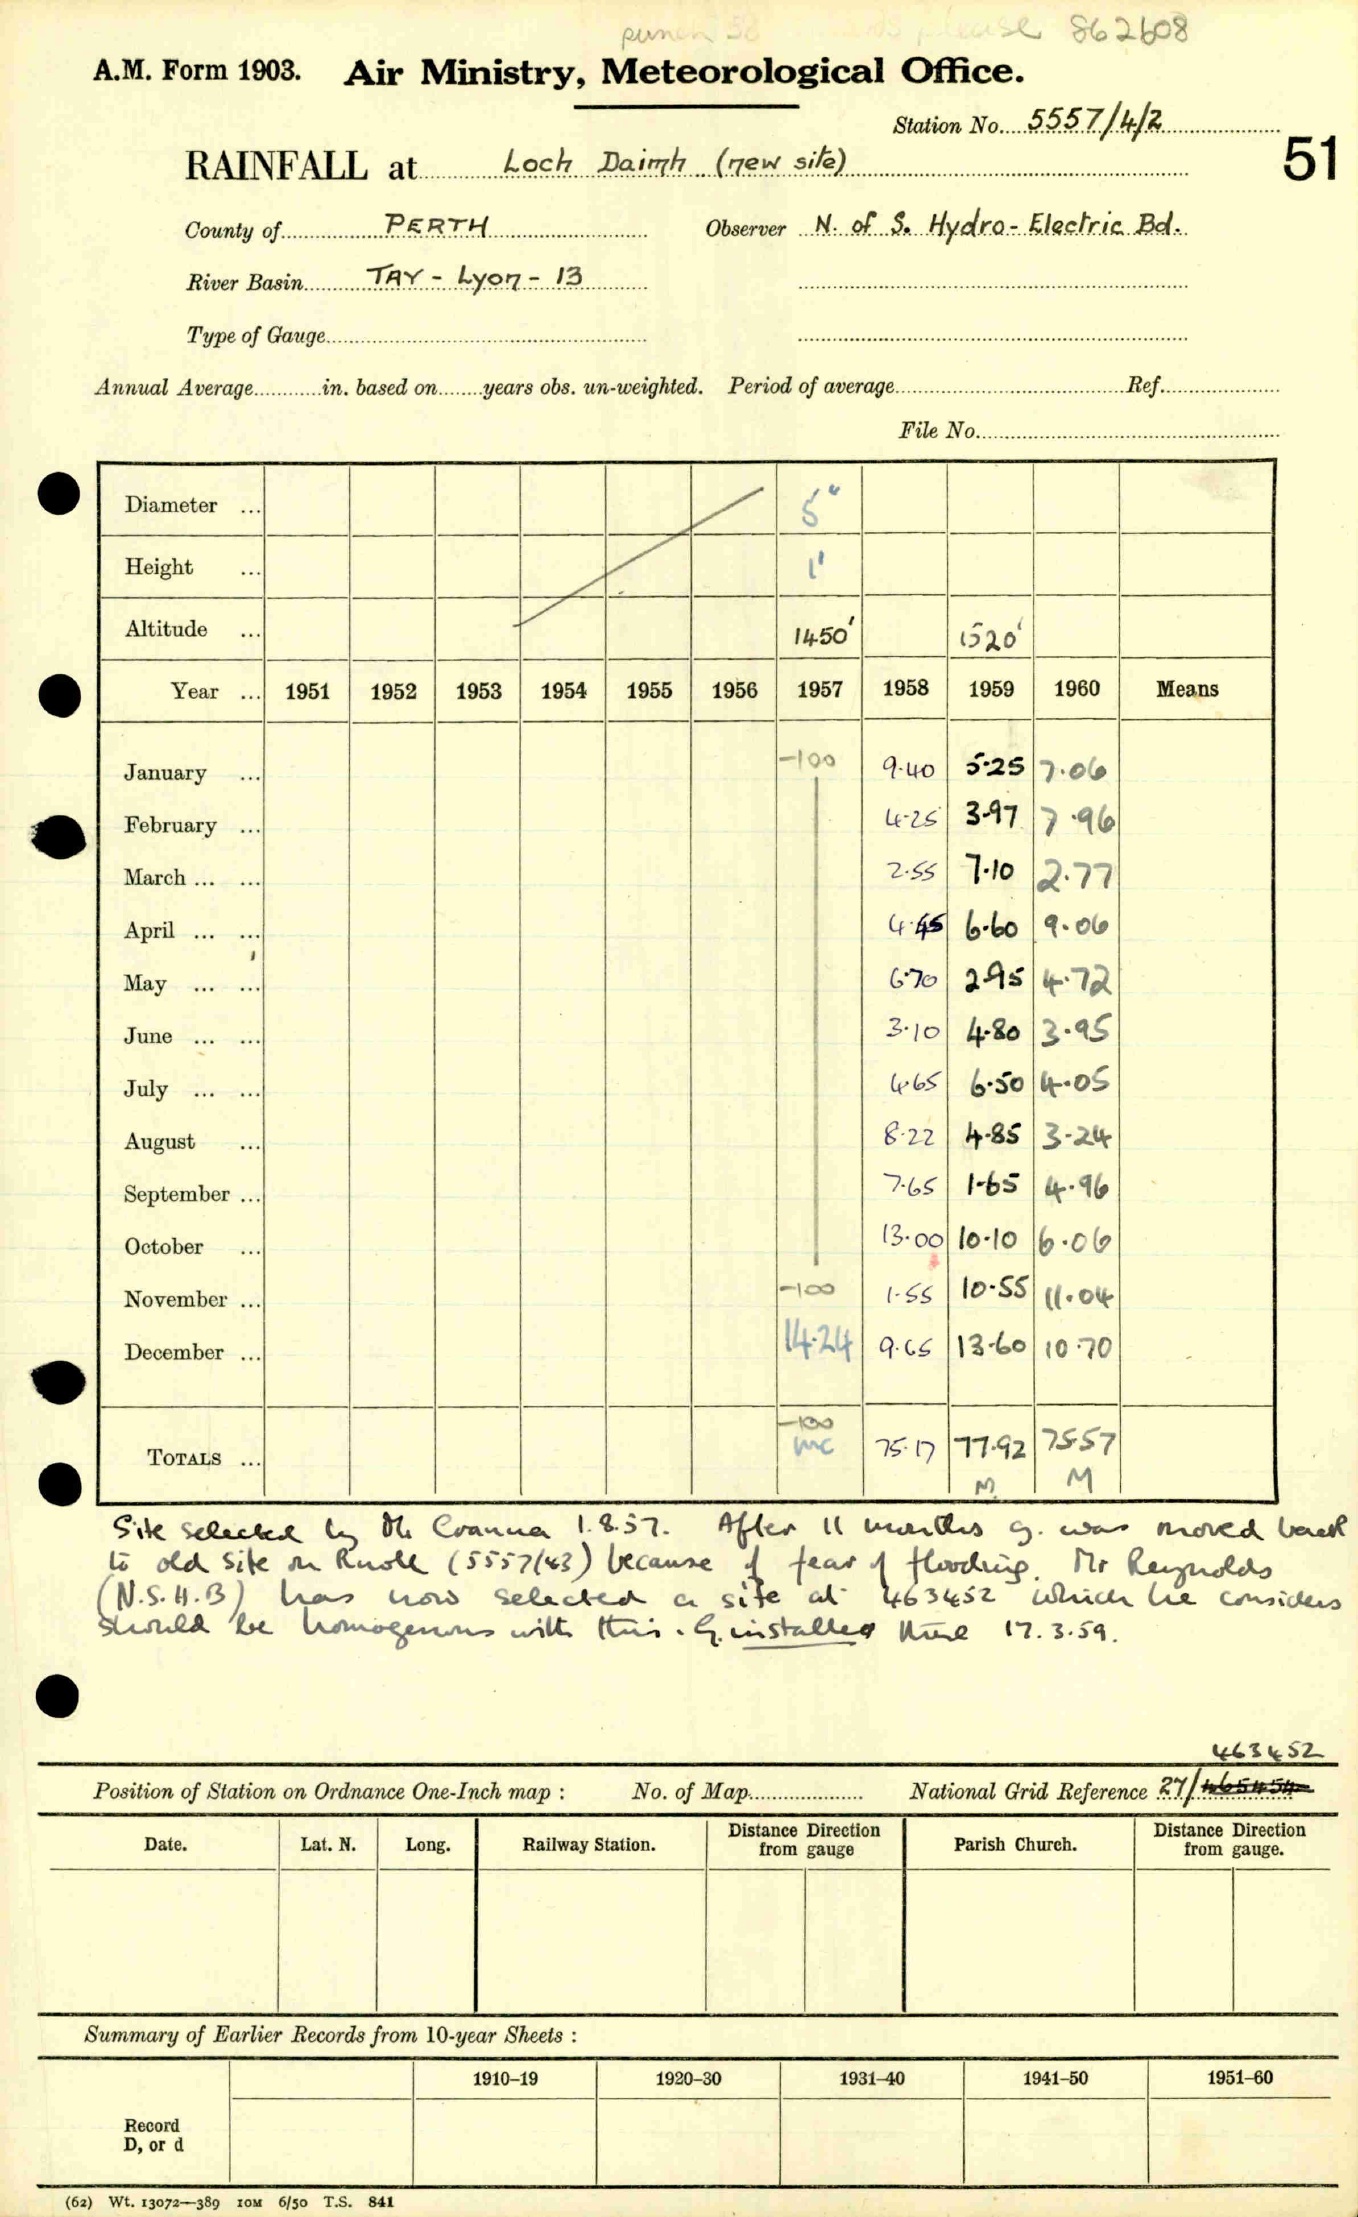 punch 58 please 862608
A.M. Form 1903. Air Ministry, Meteorological Office.
Station No. 5557/4/2
51
RAINFALL at Loch Daimh (new site)
County of PERTH Observer N. of S. Hydro-Electric Bd.
River Basin TAY - Lyon - 13
Type of Gauge
Annual Average in. based on years obs. un-weighted. Period of average Ref.
File No.
Diameter ... 5"
Height ... 1'
Altitude ... 1450' 1520'
Year ... 1951 1952 1953 1954 1955 1956 1957 1958 1959 1960 Means
January ... -100 9.40 5.25 7.06
February ... 4.25 3.97 7.96
March ... ... 2.55 7.10 2.77
April ... ... 4.45 6.60 9.06
May ... ... 6.70 2.95 4.72
June ... ... 3.10 4.80 3.95
July ... ... 4.65 6.50 4.05
August ... 8.22 4.85 3.24
September ... 7.65 1.65 4.96
October ... 13.00 10.10 6.06
November ... -100 1.55 10.55 11.04
December ... 14.24 9.65 13.60 10.70
-100
TOTALS ... mc 75.17 77.92 75.57
M M
Site selected by Mr 1.8.57. After 11 months g. was moved back
to old site on Knoll (5557/43) because of fear of flooding. Mr Reynolds
(N.S.H.B) has now selected a site at 463452 which he considers
should be homogenous with this. G. installed there 17.3.59.
463452
Position of Station on Ordnance One-Inch map : No. of Map National Grid Reference 27/465454
Date. Lat. N. Long. Railway Station. Distance Direction from gauge Parish Church. Distance Direction from gauge.
Summary of Earlier Records from 10-year Sheets :
1910–19 1920–30 1931–40 1941–50 1951–60
Record
D, or d
(62) Wt. 13072—389 10M 6/50 T.S. 841